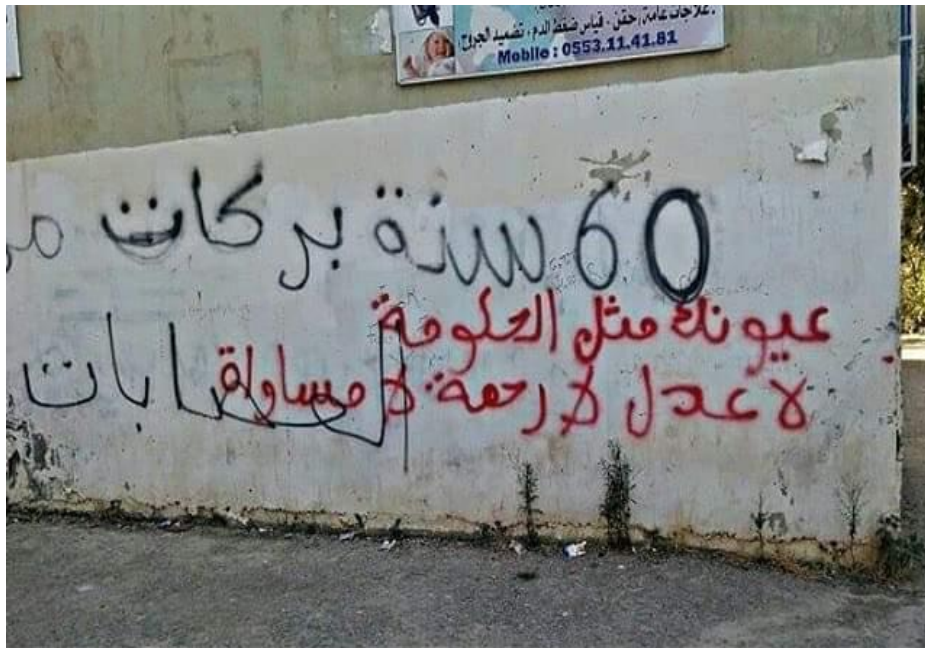 علاجات عامة، حقن، قياس ضغط الدم، تضميد الجروح
Mobile : 0553.11.41.81
60 سنة بركات
عيونك مثل الحكومة
لا عدل لا رحمة لا مساواة